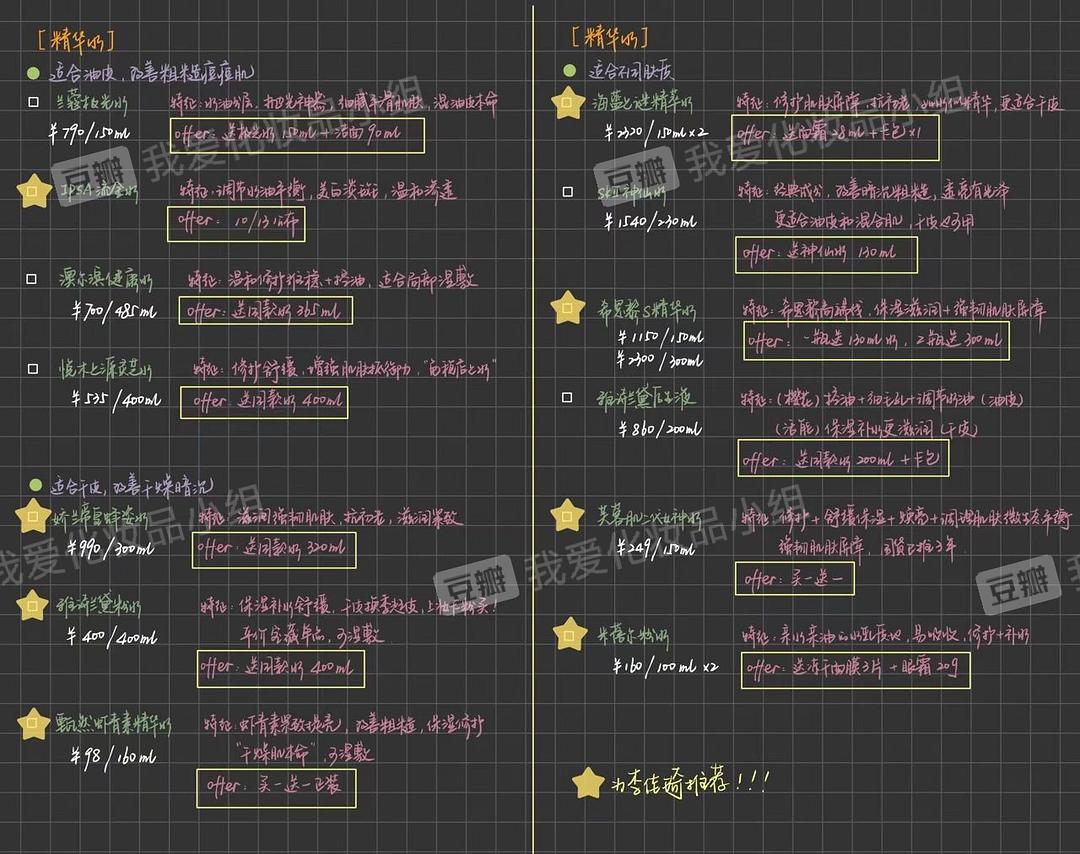 [精华水]
适合油皮，改善粗糙痘痘肌
兰蔻极光水
特征：水油分层，抛光神器，细腻平滑肌肤，混油皮本命
¥790/150ml
offer：送极光水150ml+洁面90ml
IPSA流金水
特征：调节水油平衡，美白淡斑，温和渗透
offer：10/13公布
澳尔滨健康水
特征：温和修护维稳+控油，适合局部湿敷
¥700/485ml
offer：送同款水365ml
悦木之源灵芝水
特征：修护舒缓，增强肌肤抵御力，
¥535/400ml
offer：送同款水400ml
适合干皮，改善干燥暗沉
娇兰帝皇蜂姿水
特征：滋润强韧肌肤，抗初老，滋润
¥990/300ml
offer：送同款水320ml
雅诗兰黛粉水
特征：保湿补水舒缓，干皮换季起皮，
¥400/400ml
平价宝藏单品，可湿敷
offer：送同款水400ml
虾青素精华水
特征：虾青素 提亮，改善粗糙，保湿修护
¥98/160ml
"干燥肌本命"，可湿敷
offer：买一送一正装
[精华水]
适合不同肤质
海蓝之谜精华水
特征：修护肌肤屏障，抗初老，更适合干皮
¥2320/150ml×2
offer：送面霜28ml+卡包×1
SKII神仙水
特征：经典成分，改善暗沉粗糙，透亮有光泽
¥1540/230ml
更适合油皮和混合肌，干皮也可用
offer：送神仙水130ml
希思黎S精华水
特征：希思黎高端线，保湿滋润+强韧肌肤屏障
¥1150/150ml
offer：一瓶送130ml水，2瓶送300ml
¥2300/300ml
雅诗兰黛原生液
特征：(樱花)控油+细毛孔+调节水油(油皮)
¥860/200ml
(活能)保湿补水更滋润(干皮)
offer：送同款水200ml+卡包
芙慕肌二代女神水
特征：修护+舒缓保湿+焕亮+调理肌肤微生态平衡
¥249/150ml
强韧肌肤屏障，
offer：买一送一
米蓓尔粉水
特征：亲水亲油 易吸收，修护+补水
¥160/100ml×2
offer：送冻干面膜3片+眼霜20g
为李佳琦推荐!!!
豆瓣 我爱化妆品小组
豆瓣 我爱化妆品小组
我爱化妆品小组
豆瓣 我爱化妆品小组
豆瓣 我